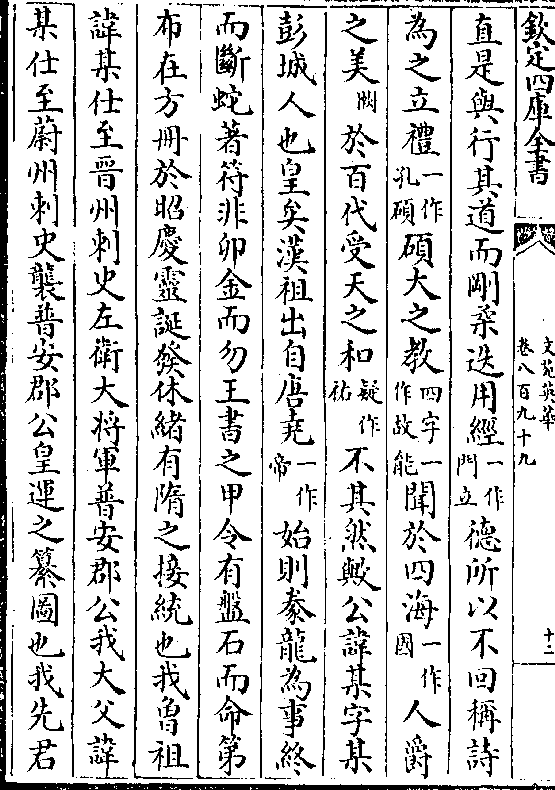 欽定四庫全書
文苑英華
卷八百九十九
十二
直是與行其道而剛柔迭用經一作門立德所以不回稱詩
為之立禮一作孔碩碩大之教四字一作故能聞於四海一作國人爵
之美闕於百代受天之和疑作祐不其然歟公諱某字某
彭城人也皇矣漢祖出自唐堯一作帝始則豢龍為事終
而斷蛇著符非卯金而勿王書之甲令有盤石而命第
布在方冊於昭慶靈誕發休緒有隋之接統也我曾祖
諱某仕至晉州刺史左衛大將軍普安郡公我大父諱
某仕至蔚州刺史襲普安郡公皇運之纂圖也我先君